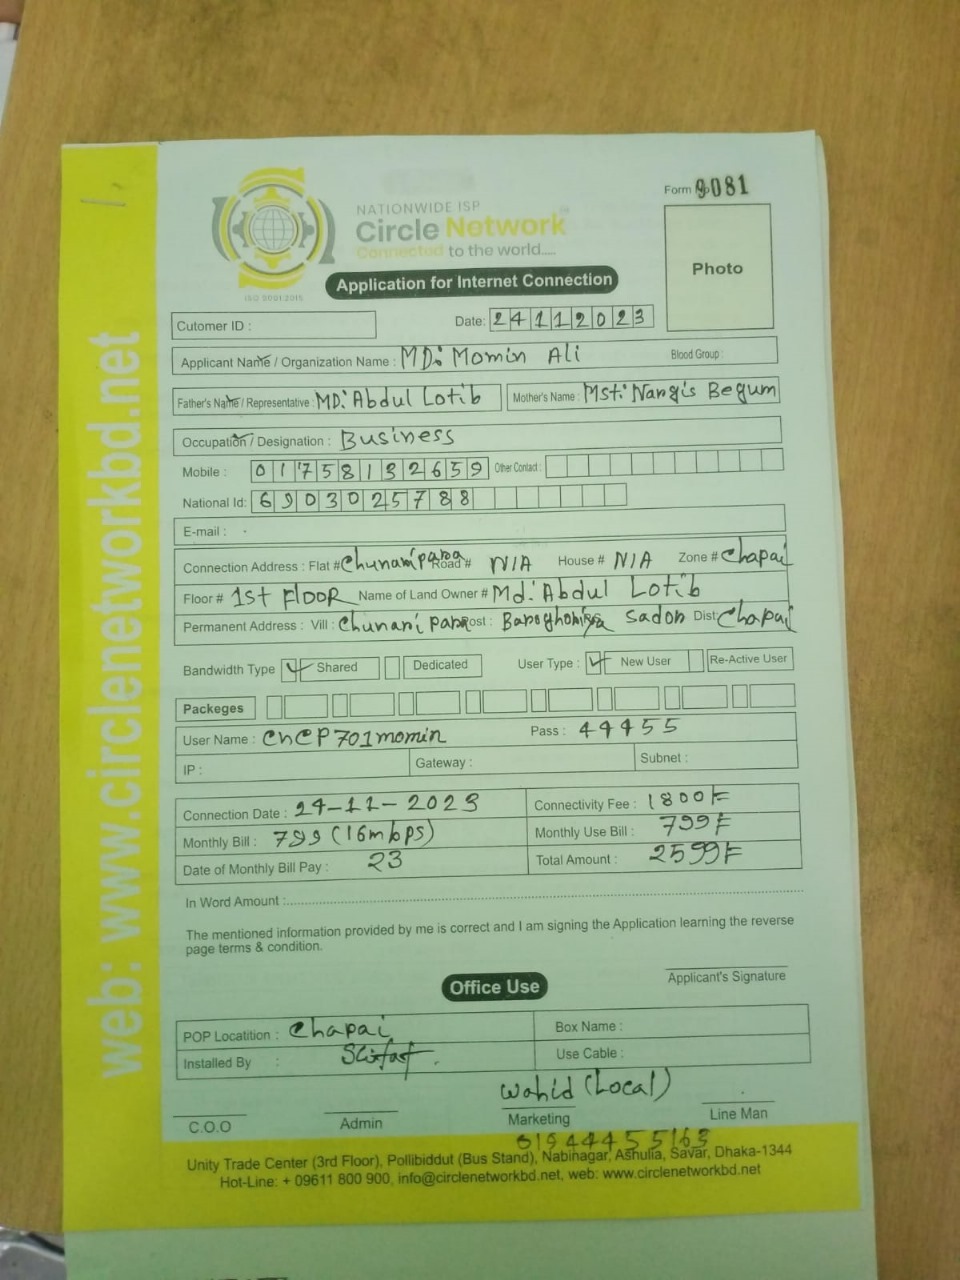 Form No 9081
NATIONWIDE ISP
Circle Network
Connected to the world.....
ISO 9001:2015
Application for Internet Connection
Photo
Cutomer ID :
Date: 24112023
Applicant Name / Organization Name : MD: Momin Ali Blood Group :
Father's Name / Representative : MD: Abdul Lotib Mother's Name : Mst: Nangis Begum
Occupation / Designation : Business
Mobile : 01758132659 Other Contact :
National Id: 6903025788
E-mail :
Connection Address : Flat # Chunaripara Road # N/A House # N/A Zone # Chapai
Floor # 1st FLOOR Name of Land Owner # Md: Abdul Lotib
Permanent Address : Vill : Chunari para Post : Baroghoriya Sador Dist: Chapai
Bandwidth Type Shared Dedicated User Type : New User Re-Active User
Packeges
User Name : CnCP701momin Pass : 44455
IP : Gateway : Subnet :
Connection Date : 24-11-2023 Connectivity Fee : 1800/=
Monthly Bill : 799 (16mbps) Monthly Use Bill : 799/=
Date of Monthly Bill Pay : 23 Total Amount : 2599/=
In Word Amount :
The mentioned information provided by me is correct and I am signing the Application learning the reverse
page terms & condition.
Applicant's Signature
Office Use
POP Locatition : Chapai Box Name :
Installed By : Use Cable :
wahid (Local)
C.O.O Admin Marketing Line Man
01944455163
Unity Trade Center (3rd Floor), Pollibiddut (Bus Stand), Nabinagar, Ashulia, Savar, Dhaka-1344
Hot-Line: + 09611 800 900, info@circlenetworkbd.net, web: www.circlenetworkbd.net
web: www.circlenetworkbd.net